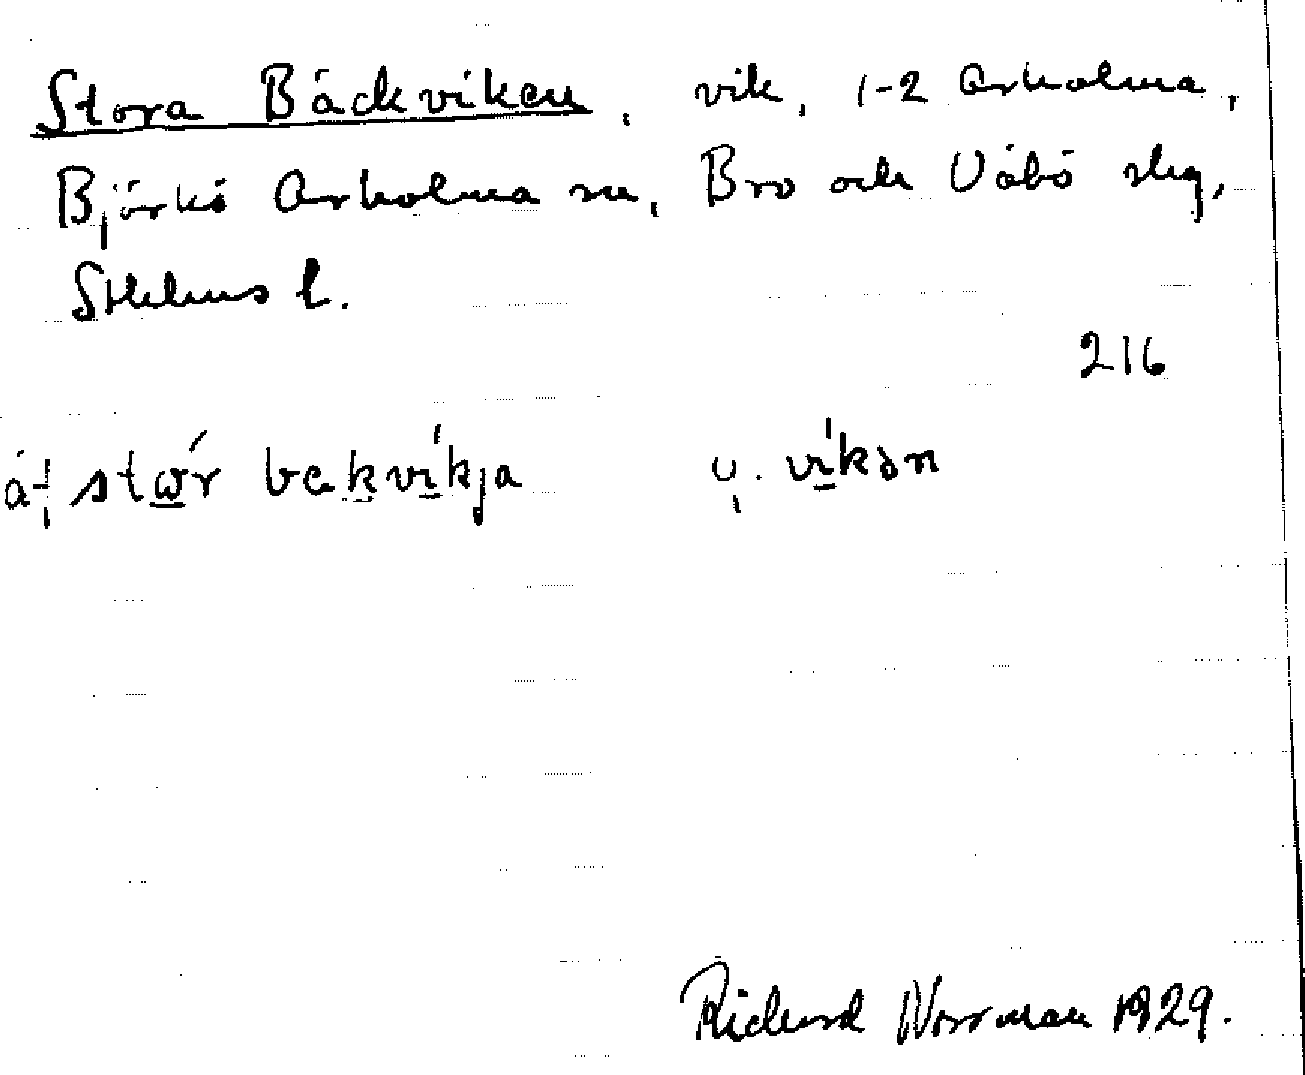 Stora Bäckviken, vik, 1-2 Arholma,
Björkö Arholma sn, Bro och Vätö slg,
Sthlms l.
216
stώ̲r bak̲vi̲kja ų. vi̲kən
Richard Norrman 1929.